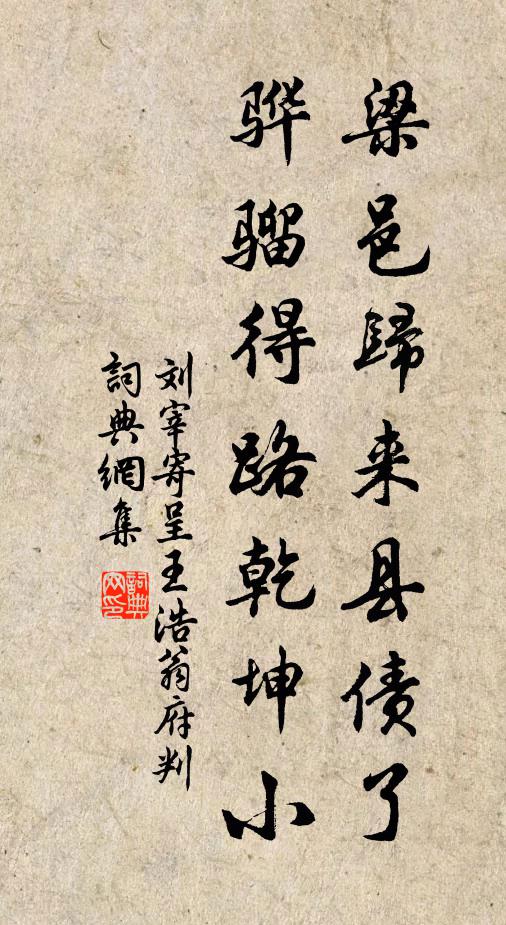 梁邑歸来县债了
骅骝得路乾坤小
刘宰寄呈王浩翁府判
詞典網集
詞典网印